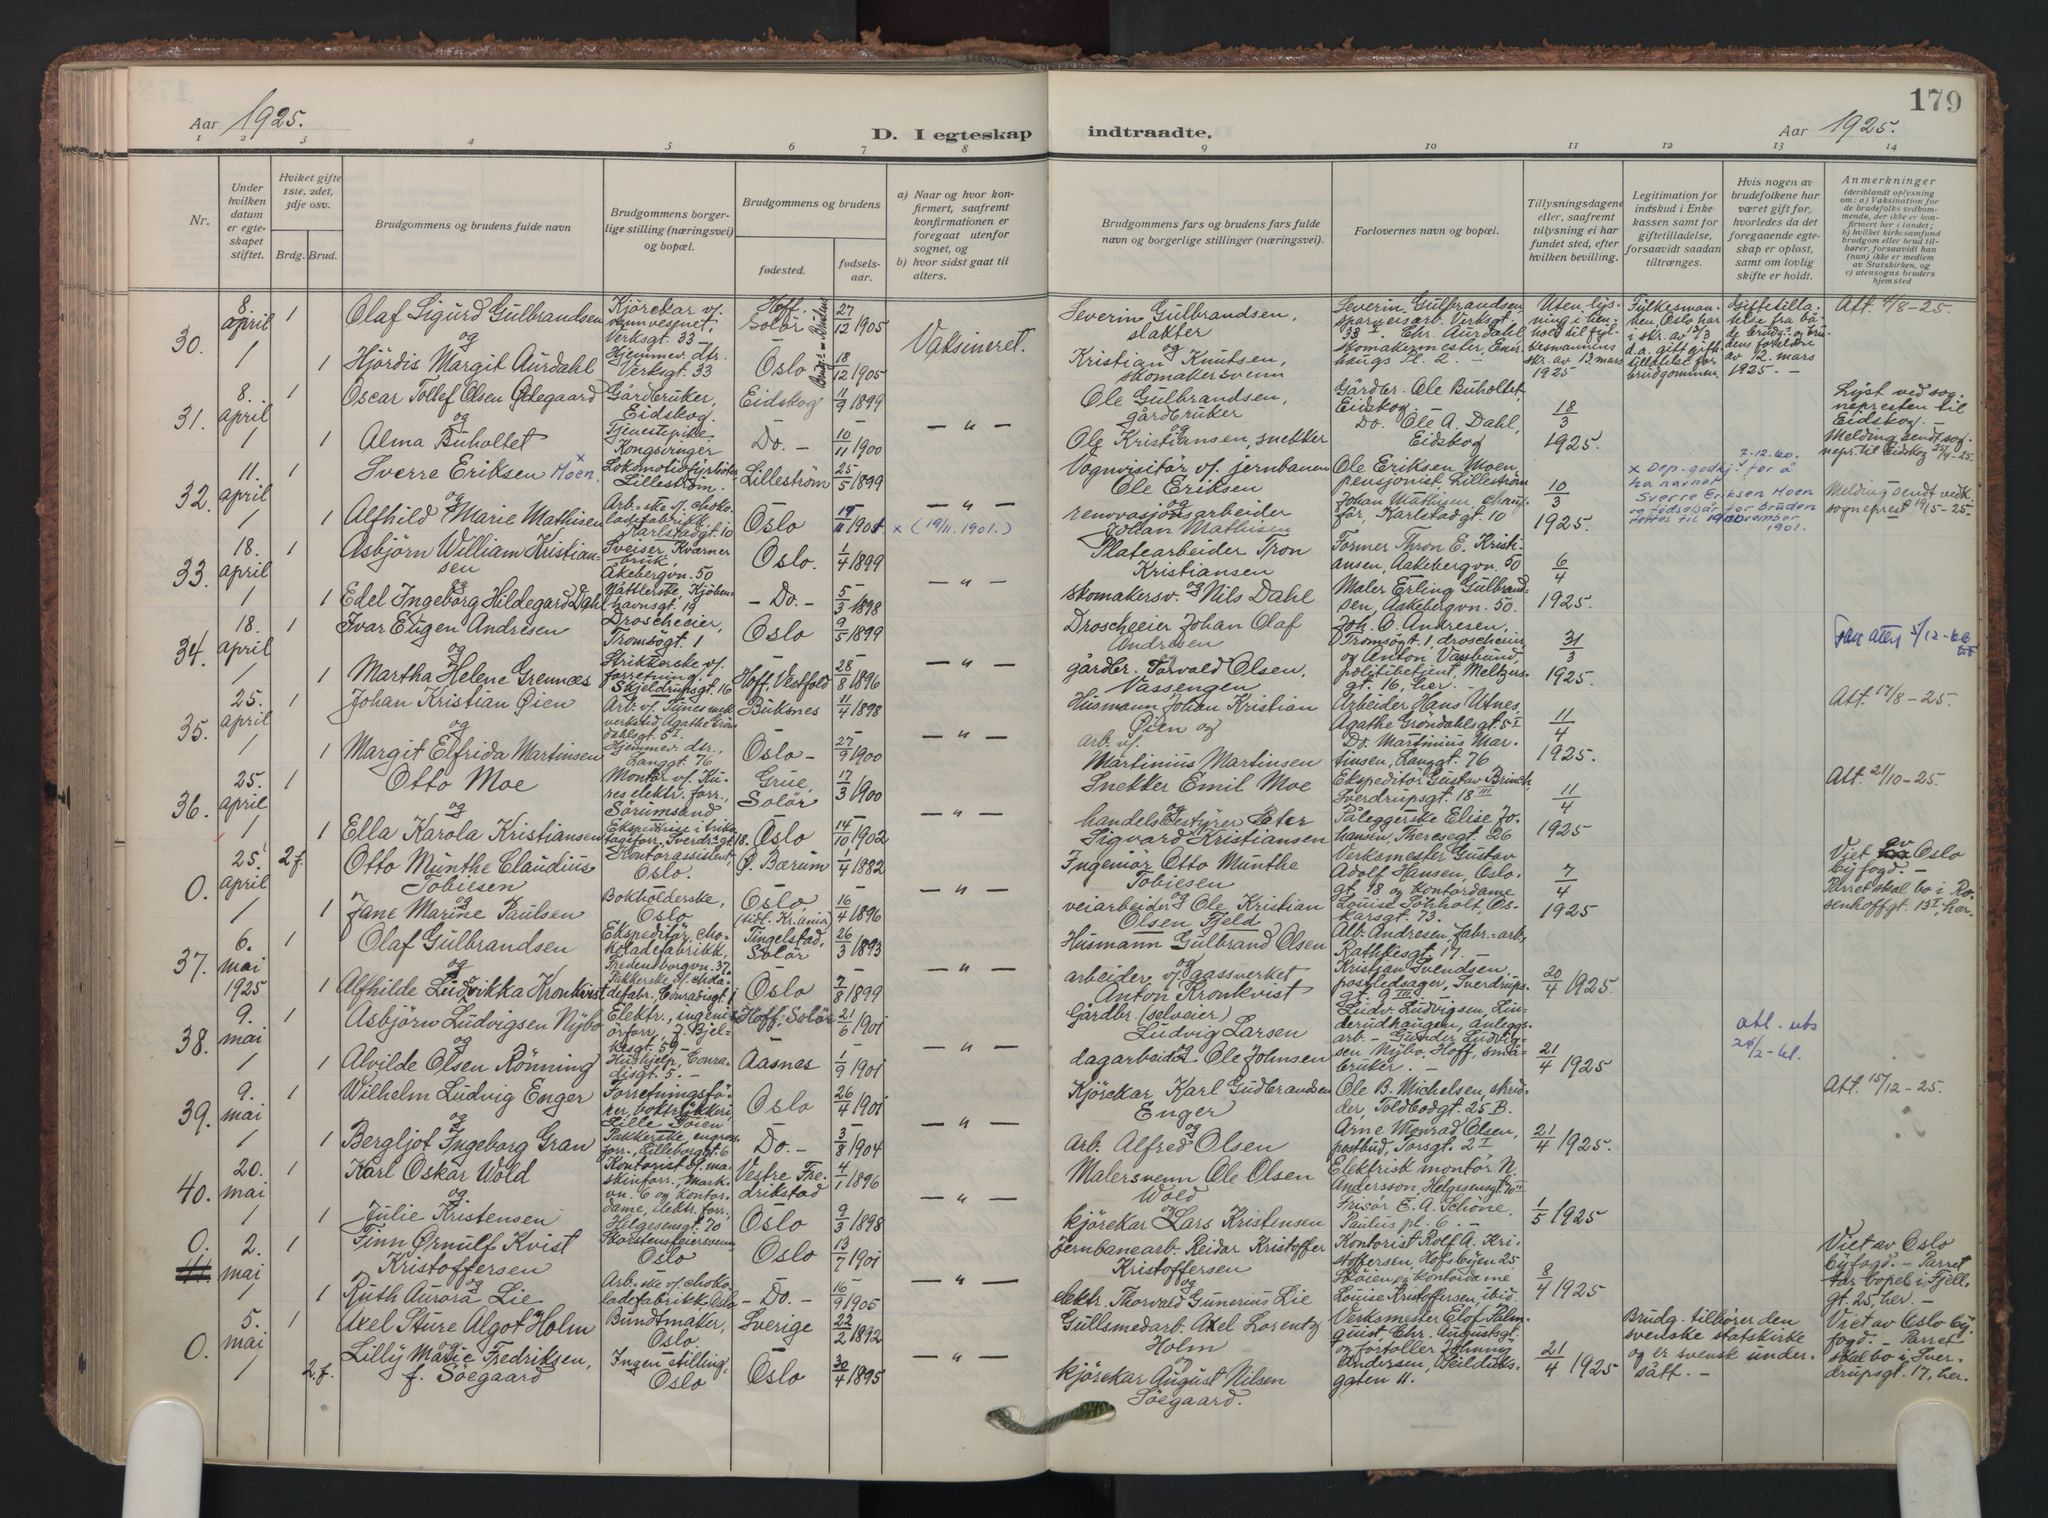 179
Aar 1925.
D. I egteskap indtraadte.
Aar 1925.
1 2 3 4 5 6 7 8 9 10 11 12 13 14
Nr.
Under hvilken datum er egteskapet stiftet.
Hviket gifte 1ste, 2det, 3dje osv.
Brdg. Brud.
Brudgommens og brudens fulde navn
Brudgommens borgerlige stilling (næringsvei) og bopæl.
Brudgommens og brudens
fødested.
fødselsaar.
a) Naar og hvor konfirmert, saafremt konfirmationen er foregaat utenfor sognet, og
b) hvor sidst gaat til alters.
Brudgommens fars og brudens fars fulde navn og borgerlige stillinger (næringsvei).
Forlovernes navn og bopæl.
Tillysningsdagene eller, saafremt tillysning ei har fundet sted, efter hvilken bevilling.
Legitimation for indskud i Enkekassen samt for giftetilladelse, forsaavidt saadan tiltrænges.
Hvis nogen av brudefolkene har været gift før, hvorledes da det foregaaende egteskap er opløst, samt om lovlig skifte er holdt.
Anmerkninger
(deriblandt oplysning om: a) Vaksination for de brudefolks vedkommende, der ikke er konfirmert her i landet; b) hvilket kirkesamfund brudgom eller brud tilhører, forsaavidt han (hun) ikke er medlem av Statskirken, og c) utensogns bruders hjemsted
30. 8. april 1
Olaf Sigurd Gulbrandsen
og
1 Hjördis Margit Aurdahl
Kjörekar v/ Verksgt. 33 –
Hjemmev. dtr. Verksgt. 33
Hoff, Solör 27/12 1905
Oslo 18/12 1905
Vaksineret.
Severin Gulbrandsen, slakter
og
Kristian Knutsen, skomakersvenn
Severin Gulbrandsen, Verksgt. 33 – Chr. Aurdahl skomakermester,
Uten lysning i henhold til fylkesmannens skr. av 13 mars 1925
Fylkesmannen, Oslo har i skr. av 13/3 d.a. gitt giftetilladelse for brudgommen.
Giftetilladelse fra både brudg. og brudens foreldre av 12. mars 1925. –
Att. 4/8 – 25.
31. 8. april 1
Oscar Tollef Olsen Ødegaard
og
1 Alma Buholtet
Gårdbruker, Eidskog.
Tjenestepike Kongsvinger
Eidskog 11/9 1899
Do. – 10/11 1900
– " –
Ole Gulbrandsen, gårdbruker
og
Ole Kristiansen, snekker
Gårdbr. Ole Buholtet Eidskog
Do. Ole A. Dahl, Eidskog
18/3 1925.
Lyst ved sognepresten til Eidskog –
Melding sendt sognepr. til Eidskog 25/4 – 25.
32. 11. april 1
Sverre Eriksen x Moen.
og
1 Alfhild Marie Mathisen
Lokomotivfyrböter Lilleström.
Arb.-ske v/ chokoladefabrikk, Karlstadgt. 10
Lilleström 25/5 1899
Oslo 19/11 1901 x (19/11. 1901.)
– " –
Vognvisitör v/ jernbanen Ole Eriksen
og
renovasjonsarbeider Johan Mathisen
Ole Eriksen Moen, pensjonist, Lilleström
Johan Mathisen, Karlstadgt. 10
10/3 1925.
7.12.60.
x Dep. godkj. for å ha navnet Sverre Eriksen Moen og fødselsår for bruden rettes til november 1901.
Melding sendt vedk. sogneprest 19/5 – 25.
33. 18. april 1
Asbjörn William Kristiansen
og
1 Edel Ingeborg Hildegard Dahl
Sveiser, Kværner bruk, Åkebergvn. 50
Kjöbenhavnsgt. 19
Oslo. 1/4 1899
– Do. – 5/3 1898
– " –
Platearbeider Tron Kristiansen
og
skomakersv. Nils Dahl
Former Thron E. Kristiansen, Aakebergvn. 50
Maler Erling Gulbrandsen, Aakebergvn. 50.
6/4 1925.
34. 18. april 1
Ivar Eugen Andresen
og
1 Martha Helene Grennæs
Droscheeier, Tromsögt. 1
Strikkerske v. forretning, Skjeldrupsgt. 16
Oslo 9/5 1899
Hoff, Vestfold 28/8 1896
– " –
Droscheeier Johan Olaf Andresen
og
gårdbr. Torvald Olsen, Vassengen
Joh. O. Andresen, Tromsögt. 1, droscheeier og Anton Vasbund, politibetjent, Meltzersgt. 16, her. –
31/3 1925.
35. 25. april 1
Johan Kristian Øien
og
1 Margit Elfrida Martinsen
Arb. v. Tunes mek. verksted Agathe Gröndahlsgt. 5 I
Hjemmev. dtr., Langgt. 76
Buksnes 11/4 1898
Oslo – 27/9 1900
– " –
Husmann Johan Kristian Øien og
arb. v/ Martinius Martinsen
Arbeider Hans Utnes, Agathe Gröndahlsgt. 5 I
Do. Martinius Martinsen, Langgt. 76
11/4 1925.
Att. 17/8 – 25.
36. 25. april 1
Otto Moe
og
1 Ella Karola Kristiansen
Montör v/ Kures elektr. forr., Sörumsand
Ekspeditrise i trikotageforr., Sverdr.gt. 18.
Grue, Solör 17/3 1900
Oslo 14/10 1902
– " –
Snekker Emil Moe
og
handelsbestyrer Peter Sigvard Kristiansen
Ekspeditör Gustav Brinch, Sverdrupsgt. 18 III
Påleggerske Elise Johansen, Theresegt. 26
11/4 1925
Att. 21/10 – 25.
0. 25. april 2.f.
Otto Munthe Claudius Tobiesen
og
1 Jane Marine Paulsen
Kontorassistent, Oslo.
Bokholderske, Oslo
Ø. Bærum 1/4 1882
Oslo, (tidl. Kr.ania) 16/4 1896
– " –
Ingeniör Otto Munthe Tobiesen
og
veiarbeider Ole Kristian Olsen Fjeld
Verksmester Gustav Adolf Hansen, Oslogt. 18 og kontordame Louise Sönholt, Oskarsgt. 73.
7/4 1925
Viet av Oslo byfogd. –
Parret skal bo i Rosenhoffgt. 13 I, her.
37. 6. mai 1925 1
Olaf Gulbrandsen
og
1 Alfhilde Ludvikka Kronkvist
Ekspeditör, chokoladefabrikk, Fredensborgvn. 37.
Pakkerske v/ chokoladefabr., Conradisgt. 1
Tingelstad, Solör 26/3 1893
Oslo 7/8 1899
– " –
Husmann Gulbrand Olsen
og
arbeider v/ gassverket Anton Kronkvist
Alb. Andresen, fabr.-arb., Rathkesgt. 17. –
Kristian Svendsen, postledsager, Sverdrupsgt. 9 III –
20/4 1925.
38. 9. mai 1
Asbjörn Ludvigsen Nybo
og
1 Alvilde Olsen Rönning
Elektr., ingeniörforr., J. Bjelkesgt. 59
Hushjelp, Conradisgt. 5. –
Hoff, Solör 21/6 1901
Aasnes 1/9 1901
– " –
Gårdbr. (selveier) Ludvig Larsen
og
dagarbeider Ole Johnsen
Ludv. Ludvigsen, Linderudhaugen, anleggsarb. – Gunder Ludvigsen Nybo, Hoff, småbruker. –
21/4 1925
att. uts 24/2 – 61.
39. 9. mai 1
Wilhelm Ludvig Enger
og
1 Bergljot Ingeborg Gran
Forretningsförer, boktrykkeri, Lille Töien
Pakkerske, engrosforr., Lilleborggt. 6
Oslo 26/4 1901
Do. – 3/8 1904
– " –
Kjörekar Karl Gudbrandsen Enger
og
Arb. Alfred Olsen
Ole B. Michelsen, skredder, Toldbodgt. 25 B.
Arne Monrad Olsen, postbud, Torsgt. 2 I
21/4 1925.
Att. 15/12 – 25.
40. 20. mai 1
Karl Oskar Wold
og
1 Julie Kristensen
Kontorist v/ maskinforr., Markvn. 6 og kontordame, elektr. forr., Helgesensgt. 70
Vestre Fredrikstad 4/1 1896
Oslo 9/3 1898
– " –
Malersvenn Ole Olsen Wold
og
kjörekar Lars Kristensen
Elektrisk montör N. Andersson, Helgesensgt. 70 II
Frisör E. A. Schöne, Paulus pl. 6. –
1/5 1925
0. 41. 2. mai 1
Finn Ørnulf Kvist Kristoffersen
og
1 Ruth Aurora Lie
Skorstensfeiersvenn, Oslo
Arb.-ske v/ chokoladefabrikk, Oslo
Oslo 13/7 1901
– Do. – 16/9 1905
– " –
Jernbanearb. Reidar Kristoffer Kristoffersen
og
elektr. Thorvald Gunerius Lie
Kontorist Rolf A. Kristoffersen, Hofsbyen 25 Sköien og kontordame Louise Kristoffersen, ibid.
8/4 1925
Viet av Oslo byfogd. – Parret tar bopel i Fjellgt. 25, her. –
0. 5. mai 1
Axel Sture Algot Holm
og
2.f. Lilly Marie Fredriksen, f. Söegaard
Bundtmaker, Oslo.
Ingen stilling, Oslo
Sverige 22/2 1892
Oslo 30/4 1895
– " –
Gullsmedarb. Axel Lorentz Holm
og
kjörekar August Nilsen Söegaard.
Verksmester Elof Palmquist, Chr. Augustsgt. og fortoller Johnny Andersen, Seilduksgaten 11.
21/4 1925
Brudg. tilhörer den svenske statskirke og er svensk undersått. –
Viet av Oslo byfogd. – Parret skal bo i Sverdrupsgt. 17, her.